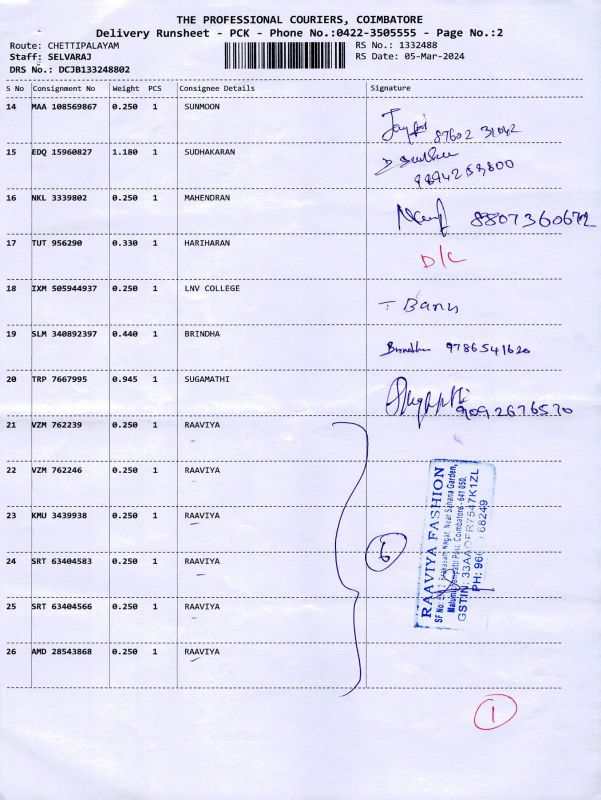 THE PROFESSIONAL COURIERS, COIMBATORE
Delivery Runsheet - PCK - Phone No.:0422-3505555 - Page No.:2
Route: CHETTIPALAYAM
RS No.: 1332488
Staff: SELVARAJ
RS Date: 05-Mar-2024
DRS No.: DCJB133248802
S No Consignment No Weight PCS Consignee Details Signature
14 MAA 108569867 0.250 1 SUNMOON
87602 31042
15 EDQ 15960827 1.180 1 SUDHAKARAN
16 NKL 3339802 0.250 1 MAHENDRAN
8807360672
17 TUT 956290 0.330 1 HARIHARAN
D/C
18 IXM 505944937 0.250 1 LNV COLLEGE
19 SLM 340892397 0.440 1 BRINDHA
9786541620
20 TRP 7667995 0.945 1 SUGAMATHI
9092676570
21 VZM 762239 0.250 1 RAAVIYA
22 VZM 762246 0.250 1 RAAVIYA
23 KMU 3439938 0.250 1 RAAVIYA
24 SRT 63404583 0.250 1 RAAVIYA
25 SRT 63404566 0.250 1 RAAVIYA
26 AMD 28543868 0.250 1 RAAVIYA
6
RAAVIYA FASHION
SF No: Nagar, Near Sahana Garden,
Post, Coimbatore - 641 050.
GSTIN: 33AAOFR7547K1ZL
PH: 68249
1